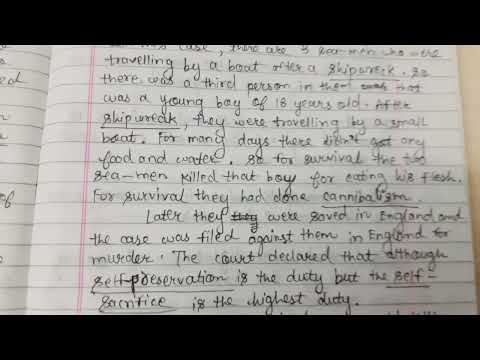 case, there are 3 sea-men who were
travelling by a boat after a shipwreck. so
there was a third person in them that
was a young boy of 18 years old. After
shipwreck, they were travelling by a small
boat. For many days there didn't got any
food and water. so for survival the two
sea-men killed that boy for eating his flesh.
For survival they had done cannibalism.
Later they they were saved in England and
the case was filed against them in England for
murder. The court declared that although
self-preservation is the duty but the self-
sacrifice is the highest duty.
ed
of